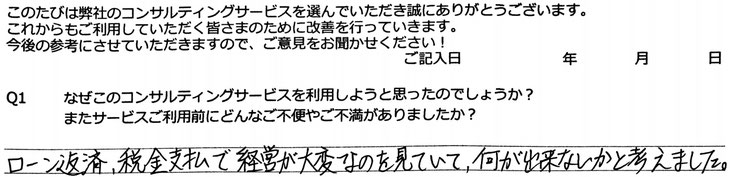 このたびは弊社のコンサルティングサービスを選んでいただき誠にありがとうございます。
これからもご利用していただく皆さまのために改善を行っていきます。
今後の参考にさせていただきますので、ご意見をお聞かせください！
ご記入日 年 月 日
Q1 なぜこのコンサルティングサービスを利用しようと思ったのでしょうか？
またサービスご利用前にどんなご不便やご不満がありましたか？
ローン返済，税金支払で経営が大変なのを見ていて，何が出来ないかと考えました。